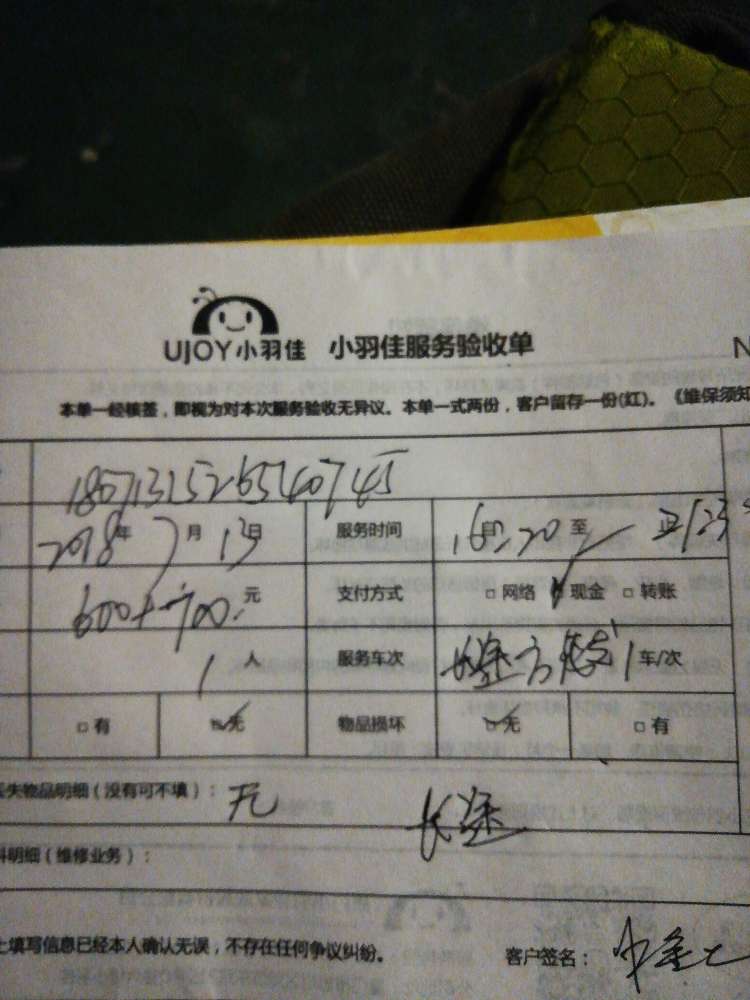 UJOY小羽佳 小羽佳服务验收单 N
本单一经核签，即视为对本次服务验收无异议。本单一式两份，客户留存一份(红)。《维保须知
2018年7月13日 服务时间 至
600+700元 支付方式 □ 网络 现金 □ 转账
1人 服务车次 1车/次
□ 有 □ 无 物品损坏 □ 无 □ 有
失物品明细（没有可不填）： 无
长途
料明细（维修业务）：
上填写信息已经本人确认无误，不存在任何争议纠纷。 客户签名：